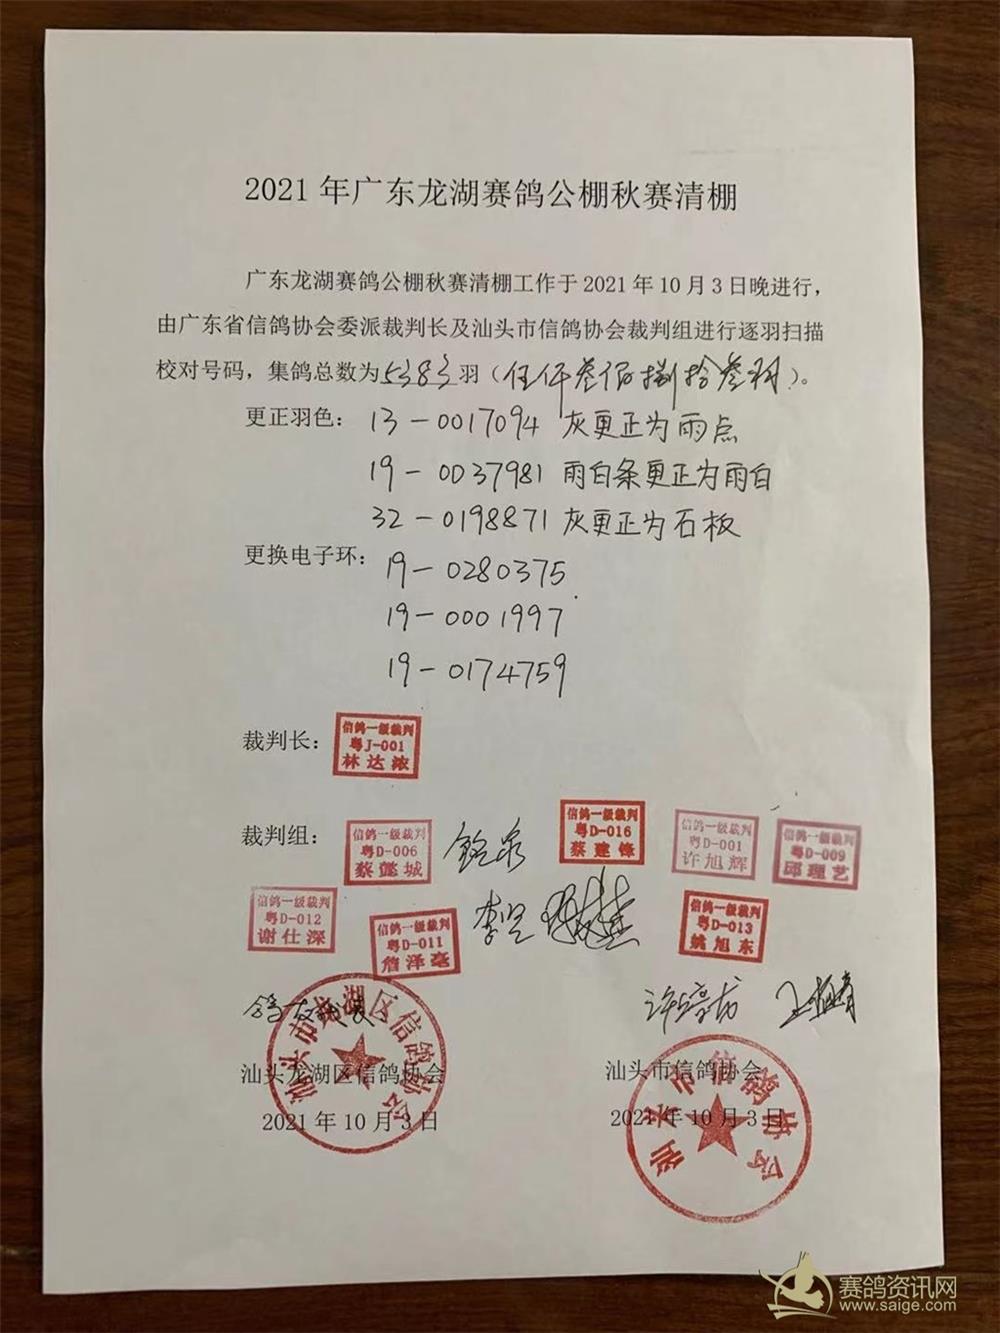 2021年广东龙湖赛鸽公棚秋赛清棚
广东龙湖赛鸽公棚秋赛清棚工作于2021年10月3日晚进行，
由广东省信鸽协会委派裁判长及汕头市信鸽协会裁判组进行逐羽扫描
校对号码，集鸽总数为5383羽（伍仟叁佰捌拾叁羽）。
更正羽色：13-0017094 灰更正为雨点
19-0037981 雨白条更正为雨白
32-0198871 灰更正为石板
更换电子环：19-0280375
19-0001997
19-0174759
裁判长：
信鸽一级裁判
粤J-001
林达浓
裁判组：
信鸽一级裁判
粤D-006
蔡懿城
信鸽一级裁判
粤D-016
蔡建锋
信鸽一级裁判
粤D-001
许旭辉
信鸽一级裁判
粤D-009
邱理艺
信鸽一级裁判
粤D-012
谢仕深
信鸽一级裁判
粤D-011
詹泽亮
信鸽一级裁判
粤D-013
姚旭东
汕头市龙湖区信鸽协会
汕头龙湖区信鸽协会
2021年10月3日
汕头市信鸽协会
汕头市信鸽协会
2021年10月3日
赛鸽资讯网
www.saige.com